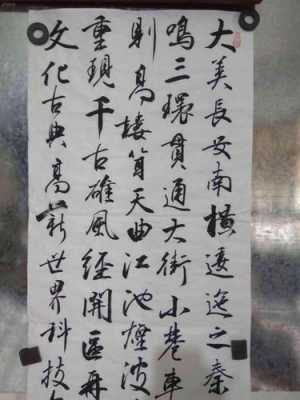 大美長安南橫逶迤之秦
鳴三環貫通大街小巷車
則高樓簡天曲江池煙波
重現千古雄風經開區再
文化古典高新世界科技